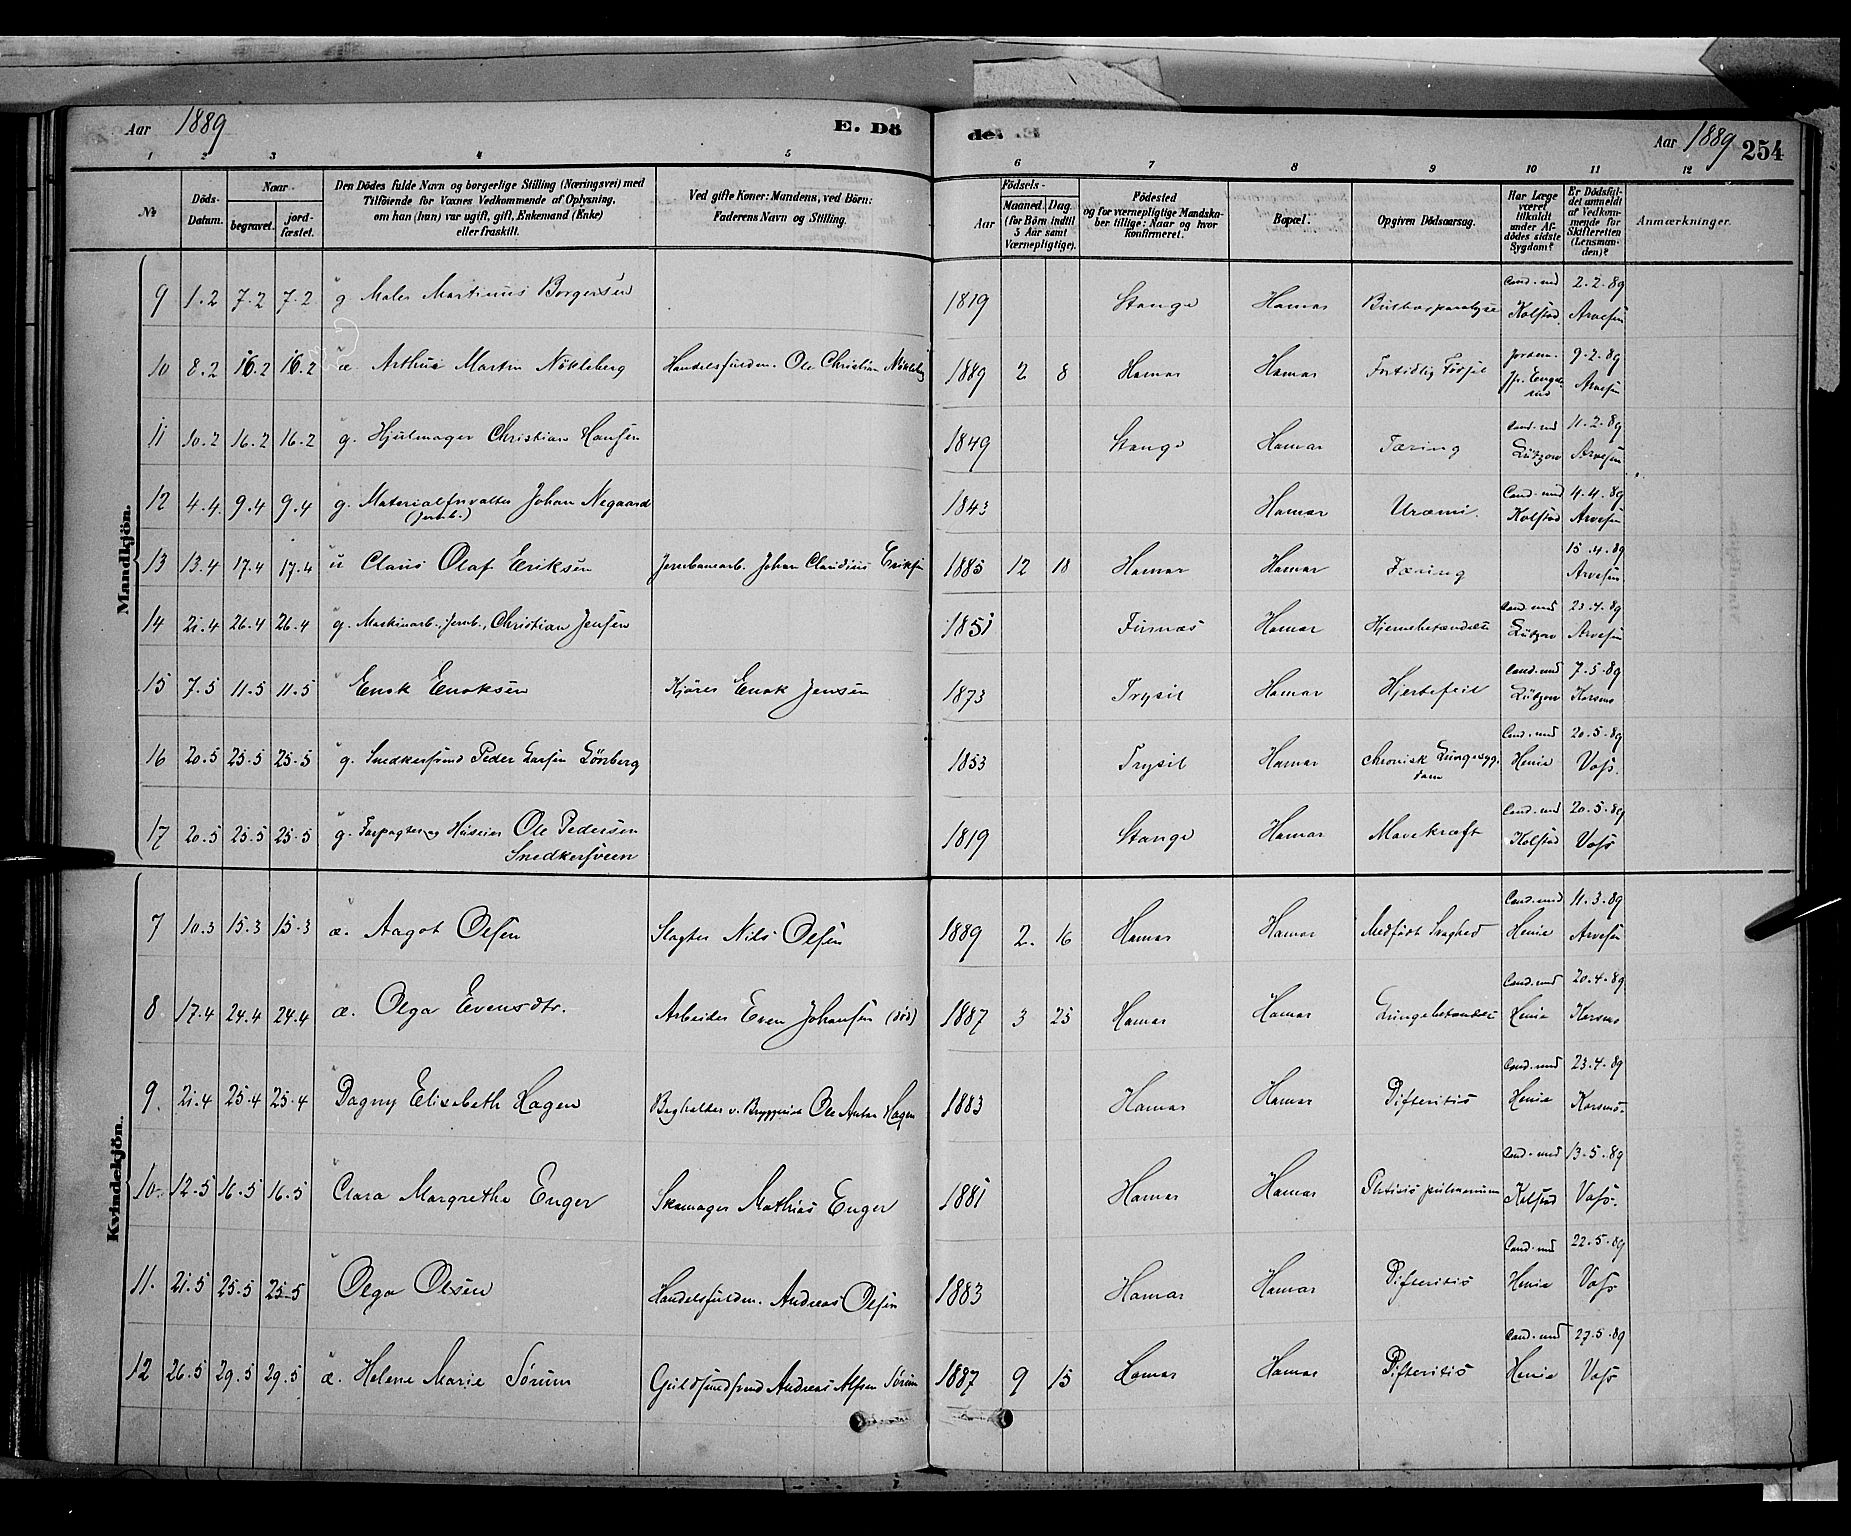 Aar 1889 E. Dö de. Aar 1889 254
1 2 3 4 5 6 7 8 9 10 11 12
№ Döds-Datum. Naar begravet. jordfæstet. Den Dödes fulde Navn og borgerlige Stilling (Næringsvei) med Tilföiende for Voxnes Vedkommende af Oplysning, om han (hun) var ugift, gift, Enkemand (Enke) eller fraskilt. Ved gifte Koner: Mandens, ved Börn: Faderens Navn og Stilling. Födsels- Aar Maaned. Dag. (for Börn indtil 5 Aar samt Værnepligtige). Födested og for værnepligtige Mandskaber tillige: Naar og hvor konfirmeret. Bopæl. Opgiven Dödsaarsag. Har Læge været tilkaldt under Afdödes sidste Sygdom? Er Dödsfaldet anmeldt af Vedkommende for Skifteretten (Lensmanden)? Anmærkninger.
Mandkjön.
9 1.2 7.2 7.2 g Maler Martinus Borgersen 1819 Stange Hamar Bulbærparalyse Cand. med Kolstad 2.2.89 Arvesen
10 8.2 16.2 16.2 æ. Arthur Martin Nökleberg Handelsfuldm. Ole Christian Nökleberg 1889 2 8 Hamar Hamar Fortidlig Födsel Jordem. 9.2.89 Arvesen
11 10.2 16.2 16.2 g. Hjulmager Christian Hansen 1849 Stange Hamar Tæring Cand. med Lützow 11.2.89 Arvesen
12 4.4 9.4 9.4 g. Materialforvalter Johan Negaard (Jernb.) 1843 Hamar Uræmi. Cand. med Kolstad 4.4.89 Arvesen
13 13.4 17.4 17.4 u Claus Olaf Eriksen Jernbanearb. Johan Claudius Eriksen 1885 12 18 Hamar Hamar Tæring 15.4.89 Arvesen
14 21.4 26.4 26.4 g. Maskinarb., Jernb., Christian Jensen 1851 Furnæs Hamar Hjernebetændelse Cand. med Lützow 23.4.89 Arvesen
15 7.5 11.5 11.5 Enok Enoksen Kjörer Enok Jensen 1873 Trysil Hamar Hjertefeil Cand. med Lützow 7.5.89 Korsmo
16 20.5 25.5 25.5 g. Snedkersvend Peder Larsen Lönberg 1853 Trysil Hamar Chronisk Lungesygdom Cand. med Henie 20.5.89 Voss.
17 20.5 25.5 25.5 g. Forpagter og Huseier Ole Pedersen Snedkersveen 1819 Stange Hamar Mavekræft Cand. med Kolstad 20.5.89 Voss
Kvindekjön.
7 10.3 15.3 15.3 æ. Aagot Olsen Slagter Nils Olsen 1889 2. 16 Hamar Hamar Medfödt Svaghed Cand. med Henie 11.3.89 Arvesen
8 17.4 24.4 24.4 æ. Olga Evensdtr. Arbeider Even Johansen (död) 1887 3 25 Hamar Hamar Lungebetændelse Cand. med Henie 20.4.89 Korsmo
9. 21.4 25.4 25.4 Dagny Elisabeth Hagen Bogholder v. Bryggeriet Ole Anton Hagen 1883 Hamar Hamar Difteritis Cand. med Henie 23.4.89 Korsmo.
10. 12.5 16.5 16.5 Clara Margrethe Enger Skomager Mathias Enger 1881 Hamar Hamar Phtisis pulmonum Cand. med Kolstad 13.5.89 Voss.
11. 21.5 25.5 25.5 Olga Olsen Handelsfuldm. Andreas Olsen 1883 Hamar Hamar Difteritis Cand. med Henie 22.5.89 Voss
12 26.5 29.5 29.5 æ. Helene Marie Sörum Guldsmedsvend Andreas Alfsen Sörum 1887 9 15 Hamar Hamar Difteritis Cand. med Henie 27.5.89 Voss